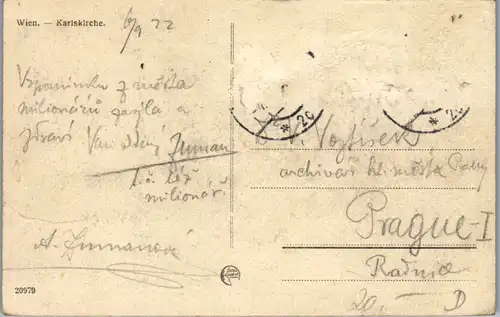 Wien. — Karlskirche.
6/9 22
Vzpomínku z města
milionářů zasílá a
zdraví Vám oddaný Zuman
t. č. též
milionář.
A. Zumanová
V. Vojtíšek
archivář hl. města Prahy
Prague-I
Radnice
20.— D
20979